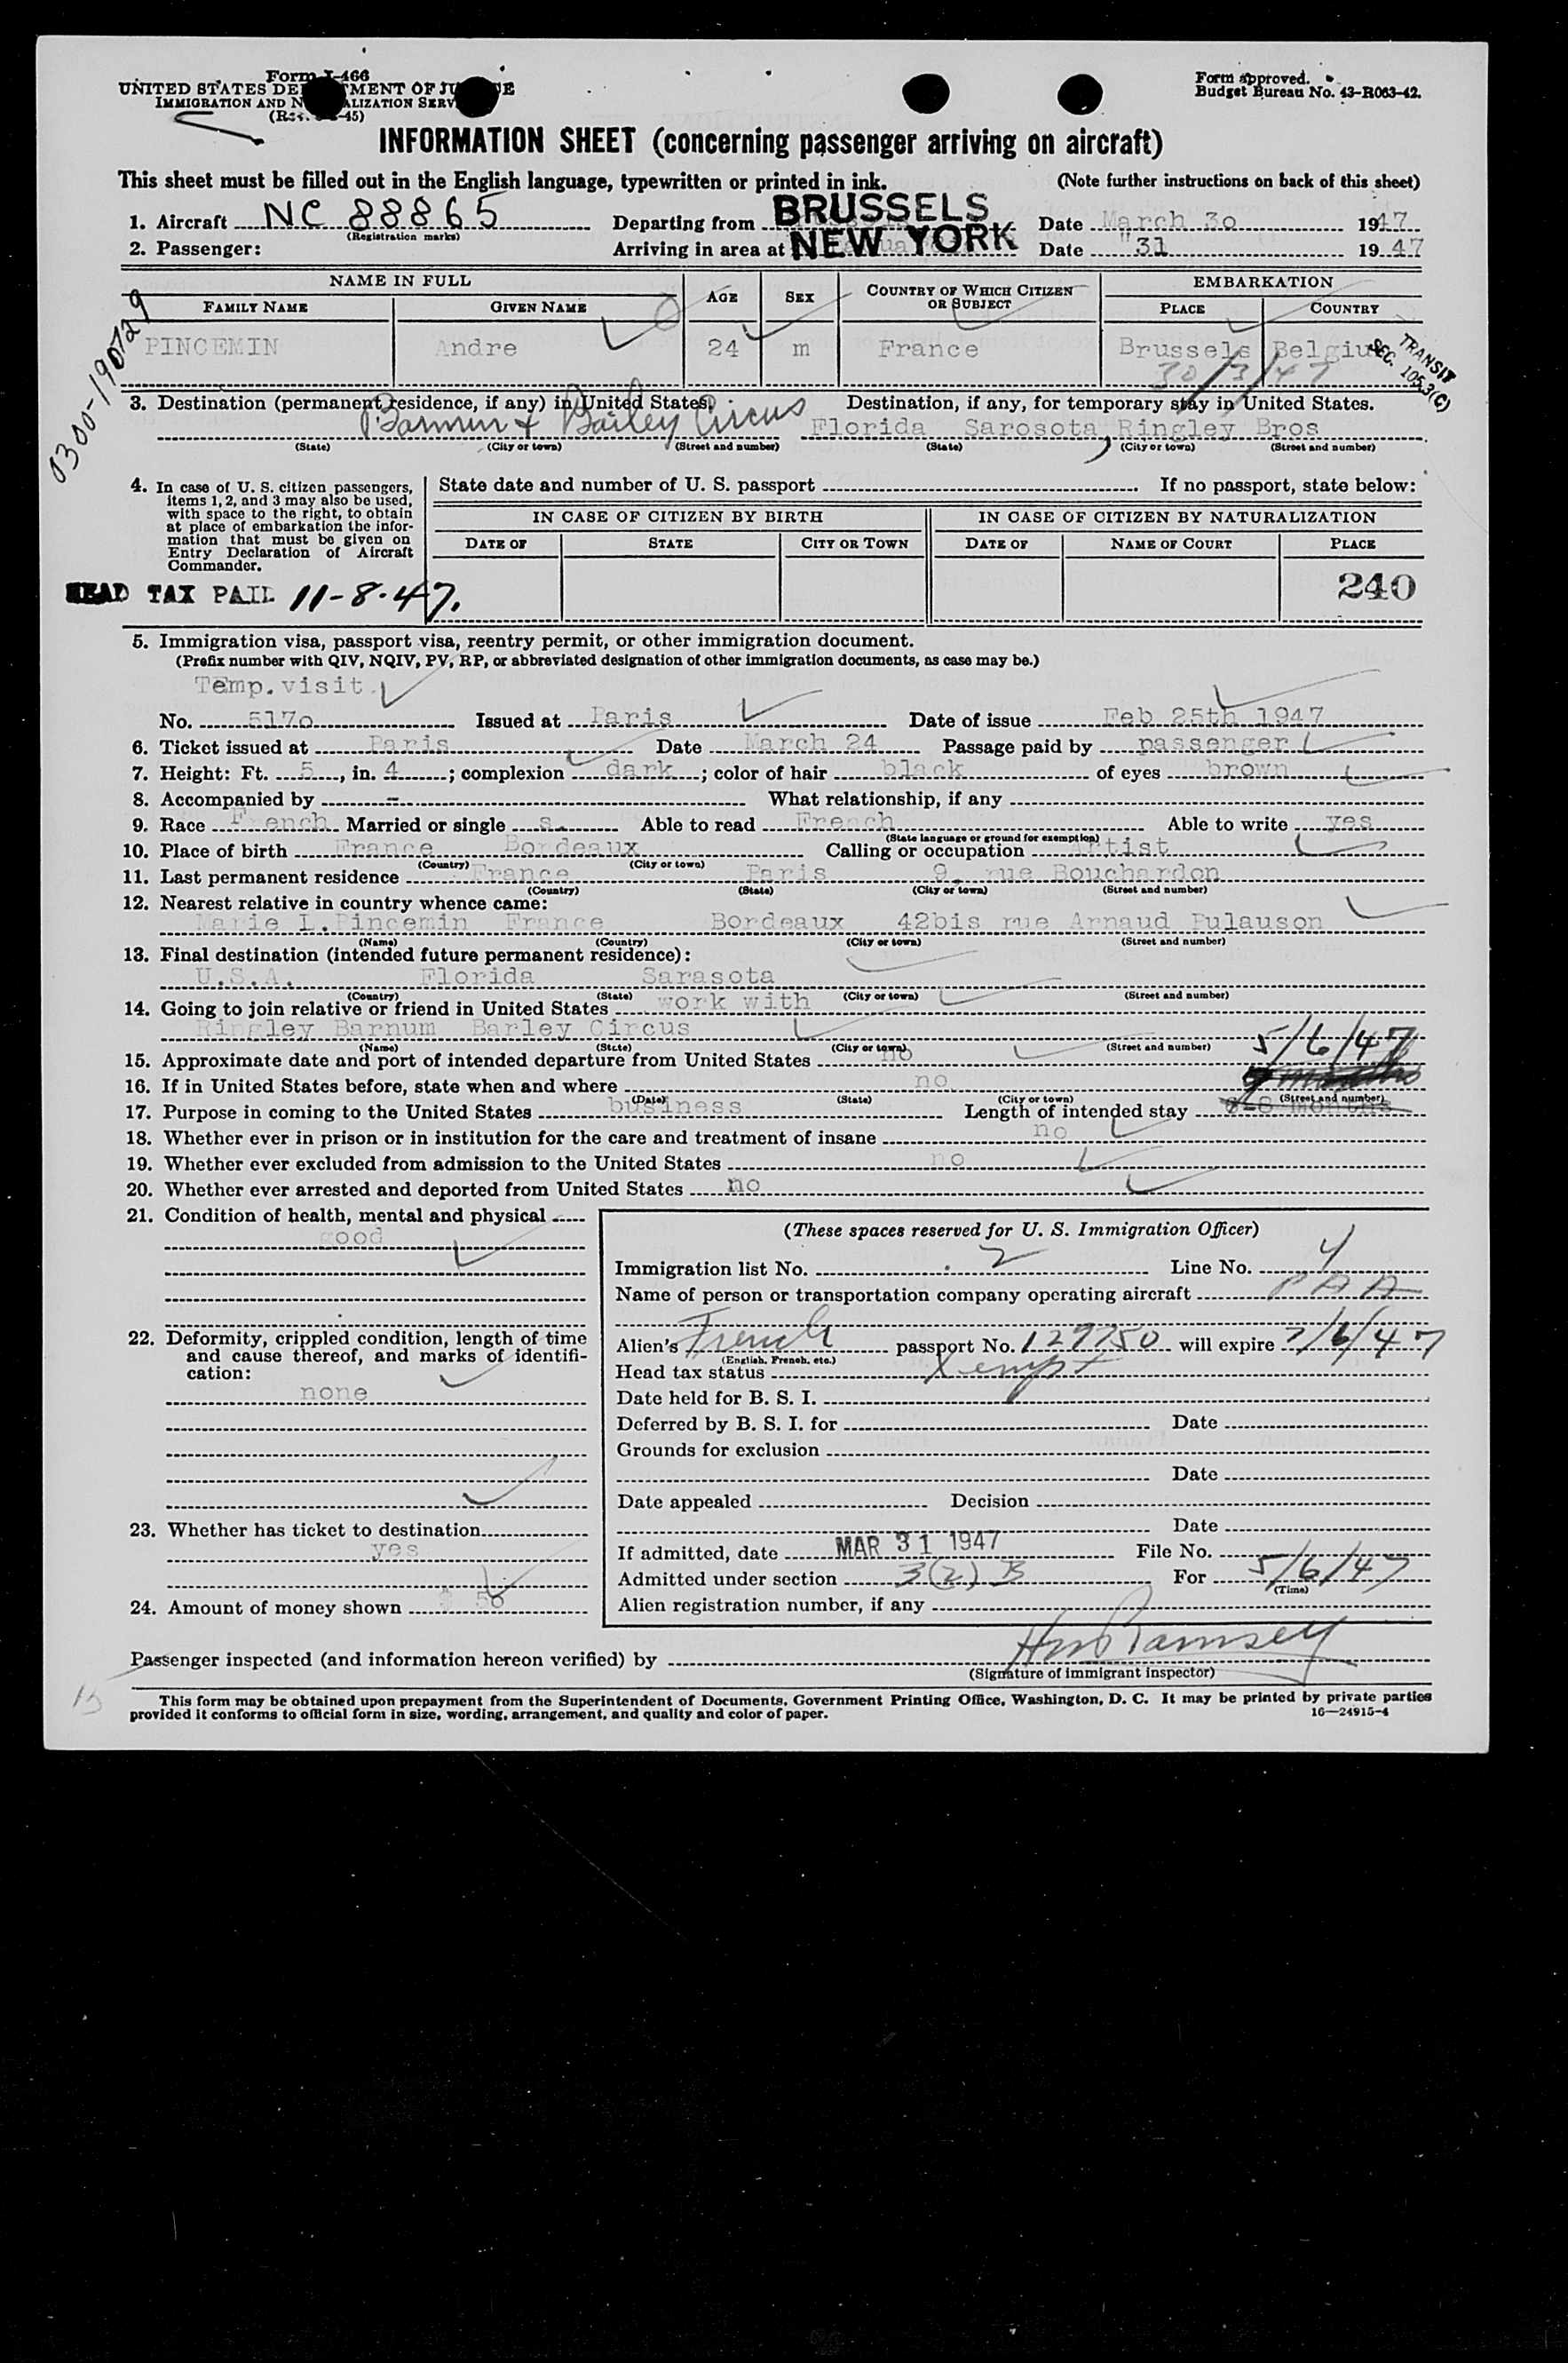 Form I-466
UNITED STATES DEPARTMENT OF JUSTICE
IMMIGRATION AND NATURALIZATION SERVICE
Form approved.
Budget Bureau No. 43-R063-42.
INFORMATION SHEET (concerning passenger arriving on aircraft)
This sheet must be filled out in the English language, typewritten or printed in ink. (Note further instructions on back of this sheet)
1. Aircraft NC 88865 Departing from BRUSSELS Date March 30 1947
(Registration marks)
2. Passenger: Arriving in area at NEW YORK Date "31 1947
NAME IN FULL AGE SEX COUNTRY OF WHICH CITIZEN OR SUBJECT EMBARKATION
FAMILY NAME GIVEN NAME PLACE COUNTRY
PINCEMIN Andre 24 m France Brussels Belgium
30/3/47
TRANSIT
SEC. 105.3(C)
0300-190729
3. Destination (permanent residence, if any) in United States. Destination, if any, for temporary stay in United States.
Barnum & Bailey Circus Florida Sarosota, Ringley Bros
(State) (City or town) (Street and number) (State) (City or town) (Street and number)
4. In case of U. S. citizen passengers, items 1, 2, and 3 may also be used, with space to the right, to obtain at place of embarkation the information that must be given on Entry Declaration of Aircraft Commander.
State date and number of U. S. passport If no passport, state below:
IN CASE OF CITIZEN BY BIRTH IN CASE OF CITIZEN BY NATURALIZATION
DATE OF STATE CITY OR TOWN DATE OF NAME OF COURT PLACE
240
HEAD TAX PAID 11-8-47.
5. Immigration visa, passport visa, reentry permit, or other immigration document.
(Prefix number with QIV, NQIV, PV, RP, or abbreviated designation of other immigration documents, as case may be.)
Temp.visit
No. 5170 Issued at Paris Date of issue Feb 25th 1947
6. Ticket issued at Paris Date March 24 Passage paid by passenger
7. Height: Ft. 5, in. 4; complexion dark; color of hair black of eyes brown
8. Accompanied by - What relationship, if any
9. Race French Married or single s. Able to read French Able to write yes
(State language or ground for exemption)
10. Place of birth France Bordeaux Calling or occupation Artist
(Country) (City or town)
11. Last permanent residence France Paris 9, rue Bouchardon
(Country) (State) (City or town) (Street and number)
12. Nearest relative in country whence came:
Marie L.Pincemin France Bordeaux 42bis rue Arnaud Pulauson
(Name) (Country) (City or town) (Street and number)
13. Final destination (intended future permanent residence):
U.S.A. Florida Sarasota
(Country) (State) (City or town) (Street and number)
14. Going to join relative or friend in United States work with
Ringley Barnum Barley Circus
(Name) (State) (City or town) (Street and number)
15. Approximate date and port of intended departure from United States no 5/6/47
16. If in United States before, state when and where no
(Date) (State) (City or town) (Street and number)
17. Purpose in coming to the United States business Length of intended stay 6-8 months
18. Whether ever in prison or in institution for the care and treatment of insane no
19. Whether ever excluded from admission to the United States no
20. Whether ever arrested and deported from United States no
21. Condition of health, mental and physical
good
22. Deformity, crippled condition, length of time and cause thereof, and marks of identification:
none
23. Whether has ticket to destination
yes
24. Amount of money shown $ 50
(These spaces reserved for U. S. Immigration Officer)
Immigration list No. 2 Line No. 4
Name of person or transportation company operating aircraft PAA
Alien's French passport No. 129750 will expire 7/6/47
(English, French, etc.)
Head tax status Xempt
Date held for B. S. I.
Deferred by B. S. I. for Date
Grounds for exclusion
Date
Date appealed Decision
Date
If admitted, date MAR 31 1947 File No.
Admitted under section 3(2) B For 5/6/47
(Time)
Alien registration number, if any
Passenger inspected (and information hereon verified) by Ramsey
(Signature of immigrant inspector)
15
This form may be obtained upon prepayment from the Superintendent of Documents, Government Printing Office, Washington, D. C. It may be printed by private parties
provided it conforms to official form in size, wording, arrangement, and quality and color of paper. 16—24915-4